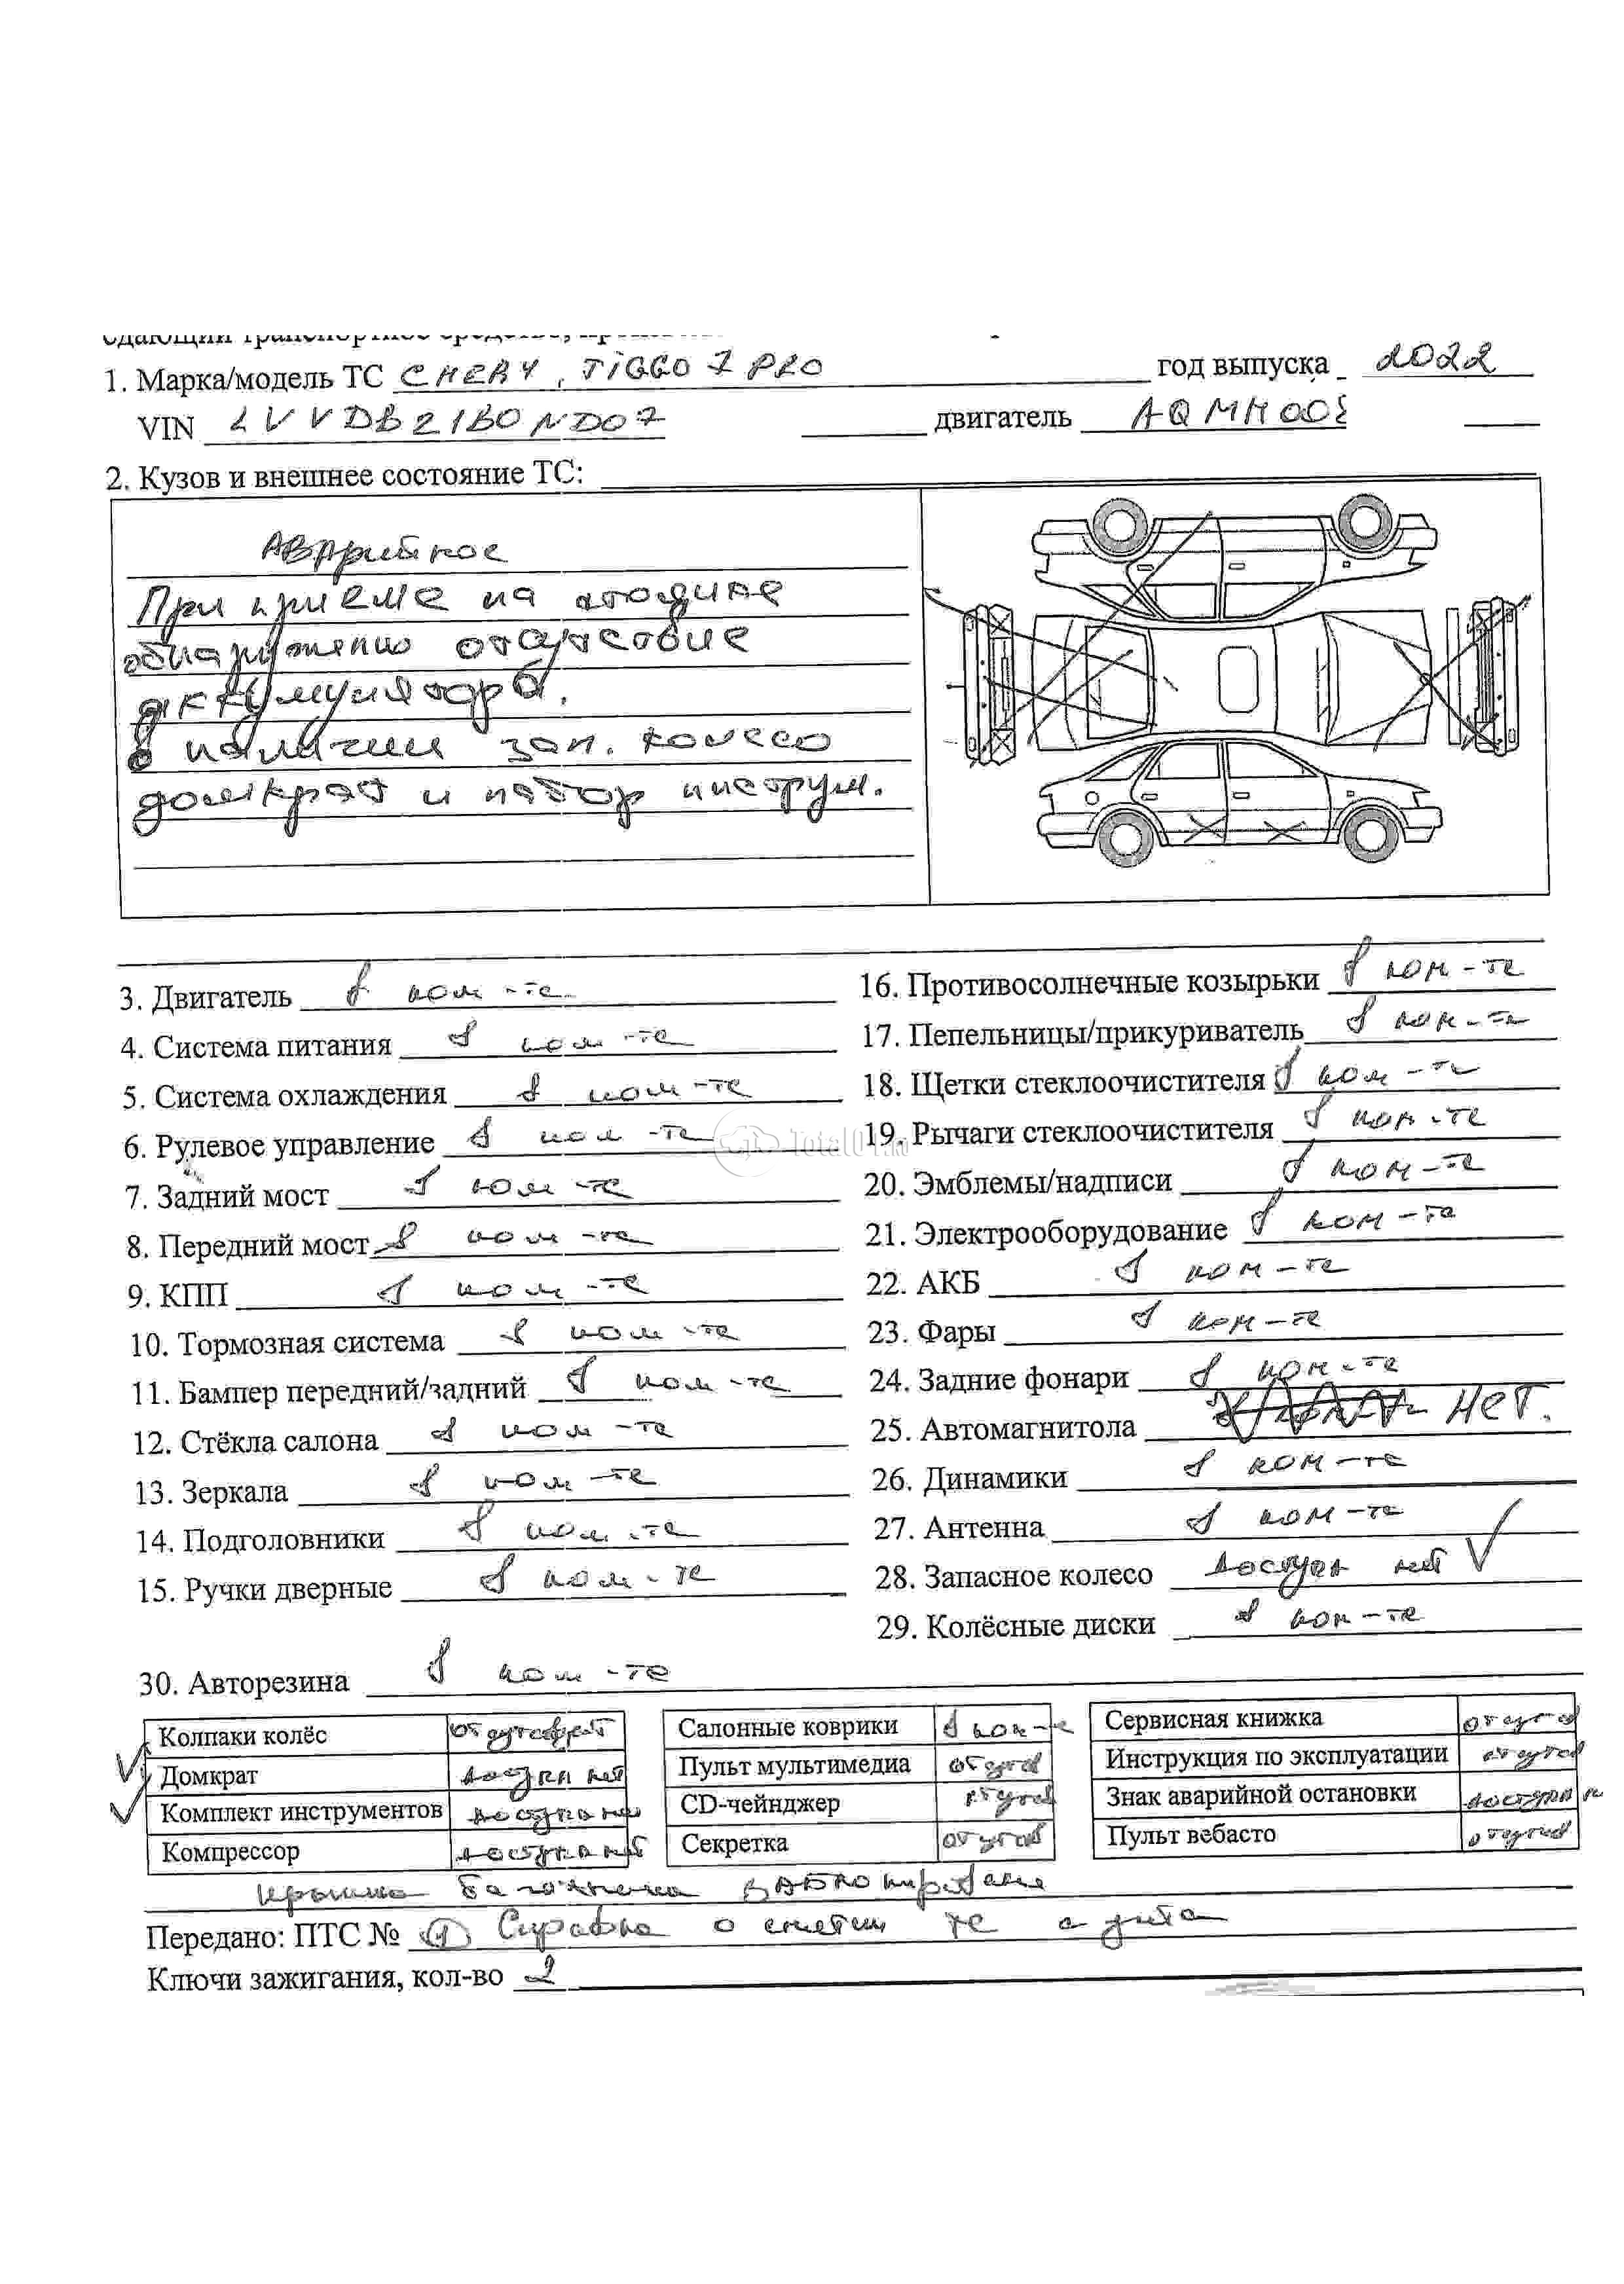 1. Марка/модель ТС CHERY, TIGGO 7 PRO год выпуска 2022
VIN LVVDB21B0ND07 двигатель AQMH00
2. Кузов и внешнее состояние ТС:
Аварийное
При приеме на стоянке
обнаружено отсутствие
аккумулятора.
в наличии зап. колесо
домкрат и набор инструм.
3. Двигатель в ком-те
4. Система питания в ком-те
5. Система охлаждения в ком-те
6. Рулевое управление в ком-те
7. Задний мост в ком-те
8. Передний мост в ком-те
9. КПП в ком-те
10. Тормозная система в ком-те
11. Бампер передний/задний в ком-те
12. Стёкла салона в ком-те
13. Зеркала в ком-те
14. Подголовники в ком-те
15. Ручки дверные в ком-те
16. Противосолнечные козырьки в ком-те
17. Пепельницы/прикуриватель в ком-те
18. Щетки стеклоочистителя в ком-те
19. Рычаги стеклоочистителя в ком-те
20. Эмблемы/надписи в ком-те
21. Электрооборудование в ком-те
22. АКБ в ком-те
23. Фары в ком-те
24. Задние фонари в ком-те
25. Автомагнитола НЕТ.
26. Динамики в ком-те
27. Антенна в ком-те
28. Запасное колесо доступа нет
29. Колёсные диски в ком-те
30. Авторезина в ком-те
Колпаки колёс отсутствуют
Домкрат доступа нет
Комплект инструментов доступа нет
Компрессор доступа нет
Салонные коврики в ком-те
Пульт мультимедиа отсутс
CD-чейнджер отсутс
Секретка отсутс
Сервисная книжка отсутс
Инструкция по эксплуатации отсутс
Знак аварийной остановки доступа н
Пульт вебасто отсутс
крышка багажника заблокирована
Передано: ПТС № Справка о снятии ТС с учета
Ключи зажигания, кол-во 2
Total01.ru